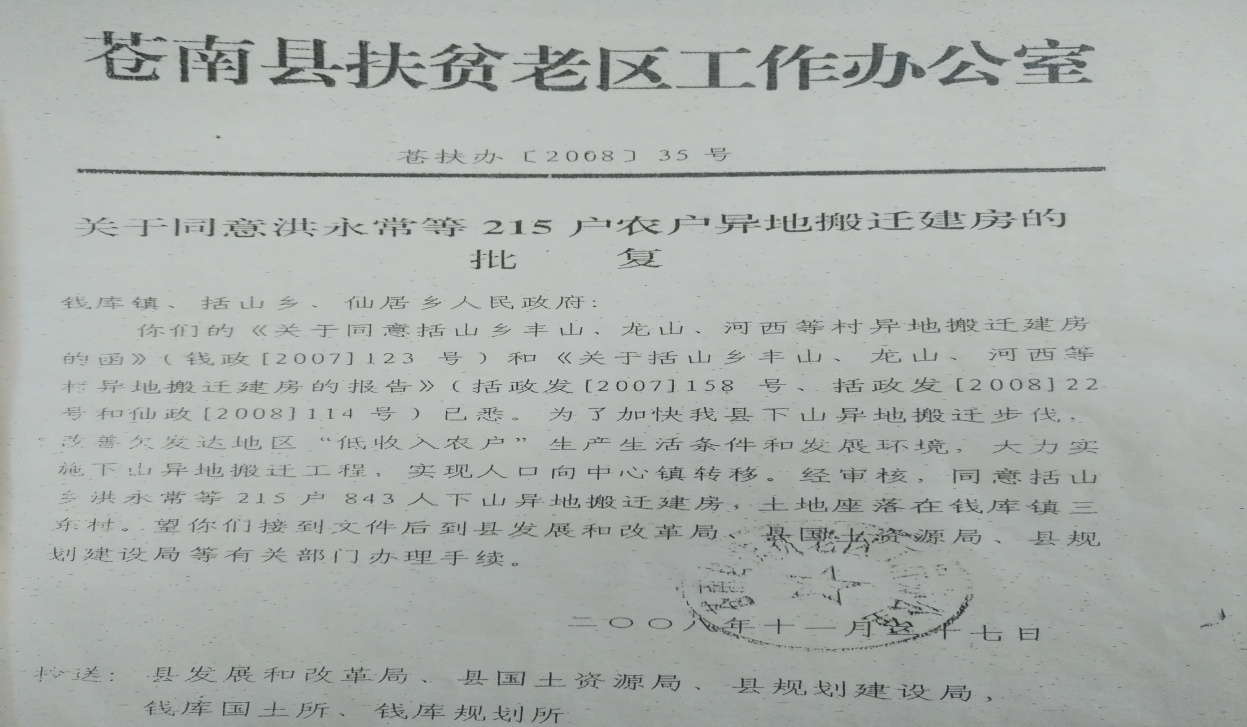 苍南县扶贫老区工作办公室
苍扶办〔2008〕35号
关于同意洪永常等215户农户异地搬迁建房的
批 复
钱库镇、括山乡、仙居乡人民政府：
你们的《关于同意括山乡丰山、龙山、河西等村异地搬迁建房
的函》（钱政[2007]123 号）和《关于括山乡丰山、龙山、河西等
村异地搬迁建房的报告》（括政发[2007]158 号、括政发[2008]22
号和仙政[2008]114号）已悉。为了加快我县下山异地搬迁步伐，
改善欠发达地区“低收入农户”生产生活条件和发展环境，大力实
施下山异地搬迁工程，实现人口向中心镇转移。经审核，同意括山
乡洪永常等215户843人下山异地搬迁建房，土地座落在钱库镇三
东村。望你们接到文件后到县发展和改革局、县国土资源局、县规
划建设局等有关部门办理手续。
二〇〇八年十一月 十七日
抄送：县发展和改革局、县国土资源局、县规划建设局，
钱库国土所、钱库规划所